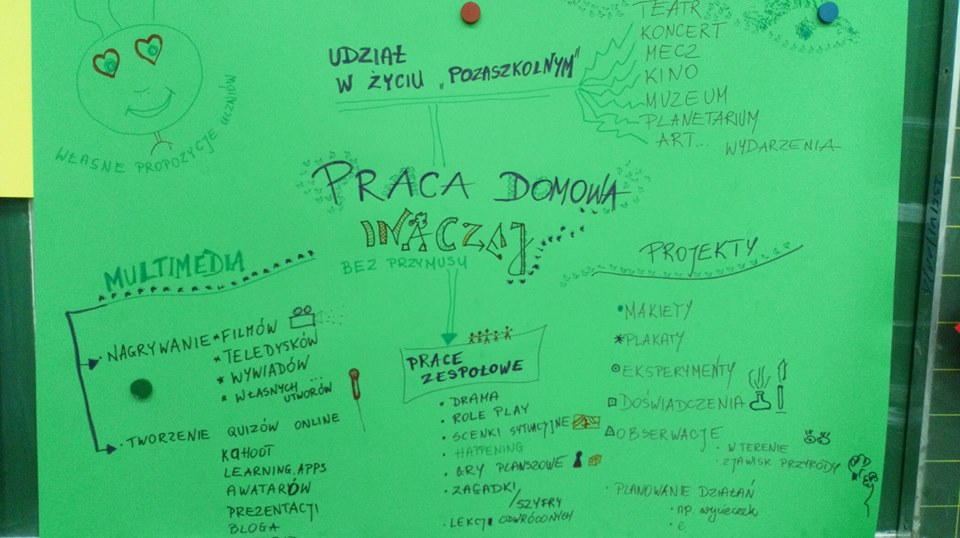 WŁASNE PROPOZYCJE UCZNIÓW
UDZIAŁ
W ŻYCIU „POZASZKOLNYM"
TEATR
KONCERT
MECZ
KINO
MUZEUM
PLANETARIUM
ART... WYDARZENIA
PRACA DOMOWA
INACZEJ
BEZ PRZYMUSU
MULTIMEDIA
NAGRYWANIE * FILMÓW
* TELEDYSKÓW
* WYWIADÓW
* WŁASNYCH ... UTWORÓW
• TWORZENIE QUIZÓW ONLINE
KAHOOT
LEARNING.APPS
AWATARÓW
PREZENTACJI
BLOGA
PRACE
ZESPOŁOWE
• DRAMA
• ROLE PLAY
• SCENKI SYTUACYJNE
• HAPPENING
• GRY PLANSZOWE
• ZAGADKI/
/SZYFRY
• LEKCJI ODWRÓCONYCH
PROJEKTY
• MAKIETY
* PLAKATY
⊙ EKSPERYMENTY
□ DOŚWIADCZENIA
△ OBSERWACJE
• W TERENIE
• ZJAWISK PRZYRODY
• PLANOWANIE DZIAŁAŃ
• np. wycieczek